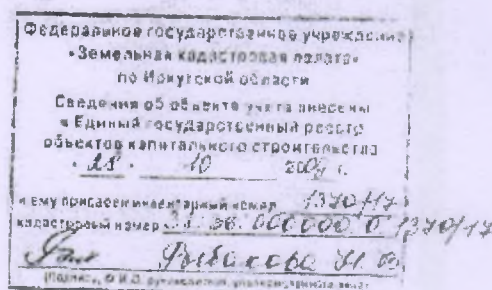 Федеральное государственное учреждение
«Земельная кадастровая палата»
по Иркутской области
Сведения об объекте учета внесены
в Единый государственный реестр
объектов капитального строительства
"28" 10 200 г.
и ему присвоен инвентарный номер 1370/17
кадастровый номер 000000 0 1370/17
Рыбакова
(Подпись, Ф.И.О. руководителя, уполномоченного лица)